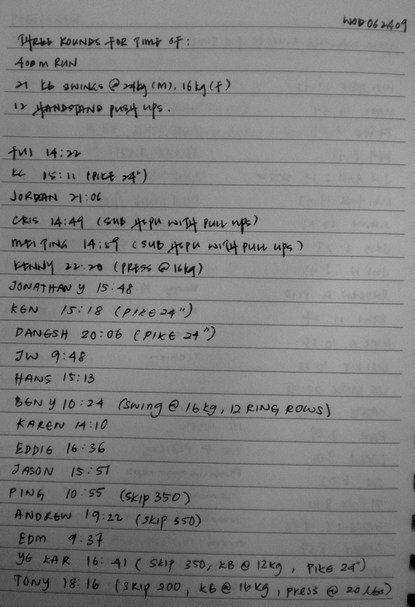 WOD 062409
THREE ROUNDS FOR TIME OF:
400m RUN
21 KB SWINGS @ 24kg (M), 16kg (F)
12 HANDSTAND PUSH UPS.
FUI 14:22
KC 15:11 (PIKE 24")
JORDAN 21:06
CRIS 14:49 (SUB HSPU WITH PULL UPS)
MEI TING 14:59 (SUB HSPU WITH PULL UPS)
KENNY 22:20 (PRESS @ 16kg)
JONATHAN Y 15:48
KEN 15:18 (PIKE 24")
DANESH 20:06 (PIKE 24")
JW 9:48
HANS 15:13
BEN Y 10:24 (SWING @ 16kg, 12 RING ROWS)
KAREN 14:10
EDDIE 16:36
JASON 15:51
PING 10:55 (SKIP 350)
ANDREW 19:22 (SKIP 350)
EDM 9:37
YE KAR 16:41 (SKIP 350, KB @ 12kg, PIKE 24")
TONY 18:16 (SKIP 200, KB @ 16kg, PRESS @ 20 lbs)